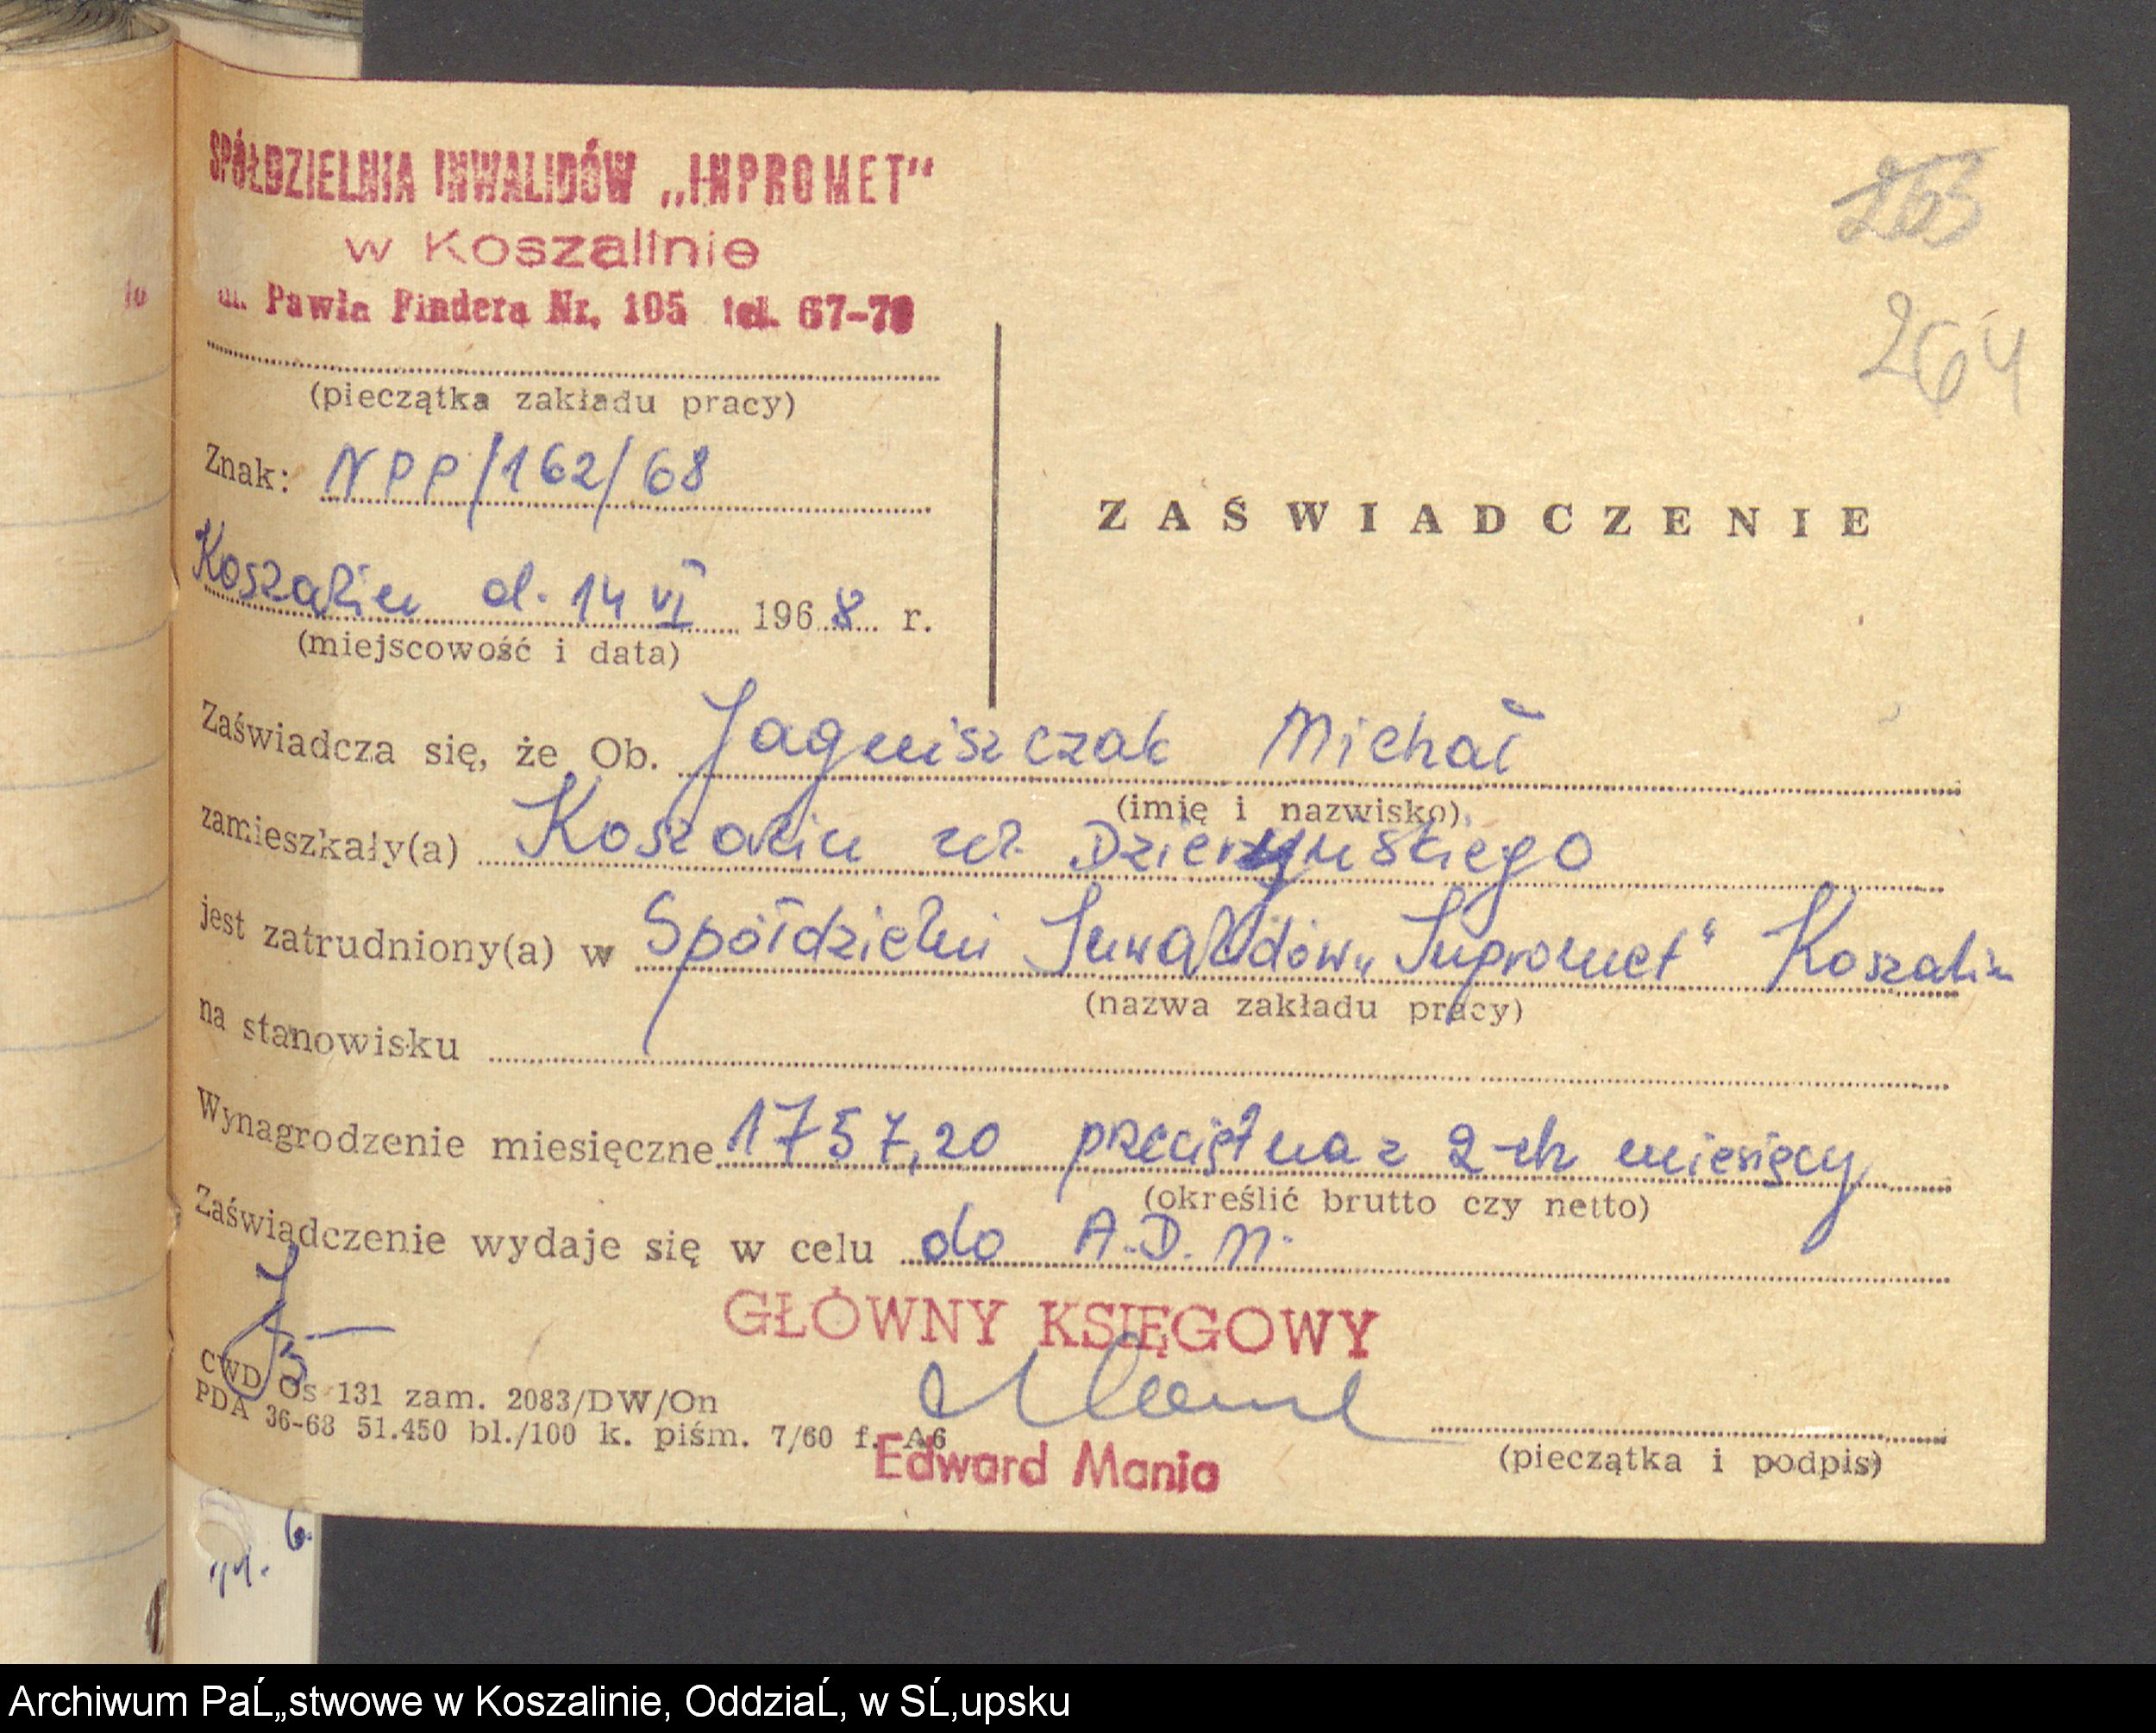 SPÓŁDZIELNIA INWALIDÓW „INPROMET"
w Koszalinie
ul. Pawła Findera Nr. 105 tel. 67-70
(pieczątka zakładu pracy)
263
264
Znak: NPP/162/68
ZAŚWIADCZENIE
Koszalin d. 14 VI 1968 r.
(miejscowość i data)
Zaświadcza się, że Ob. Jagniszczak Michał
(imię i nazwisko)
zamieszkały(a) Koszalin ul. Dzierżyńskiego
jest zatrudniony(a) w Spółdzielni Inwalidów „Inpromet" Koszalin
(nazwa zakładu pracy)
na stanowisku
Wynagrodzenie miesięczne 1757,20 przeciętna z 2-ch miesięcy
(określić brutto czy netto)
Zaświadczenie wydaje się w celu do A.D.M.
GŁÓWNY KSIĘGOWY
CWD Os 131 zam. 2083/DW/On
PDA 36-68 51.450 bl./100 k. piśm. 7/60 f. A6
Edward Mania
(pieczątka i podpis)
6.
Archiwum PaĹ„stwowe w Koszalinie, OddziaĹ‚ w SĹ‚upsku